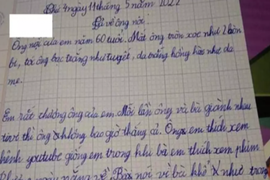 Thứ 4 ngày 11 tháng 5 năm 2022
Tả về ông nội
Ông nội của em năm 60 tuổi. Mắt ông tròn xoe như 2 hòn
bi, tóc ông bạc trắng như tuyết, da trắng hồng hào như da
mẹ.
Em rất thương ông của em. Mỗi lần ông và bà giành nhau
tivi thì ông không bao giờ thắng cả. Ông em thích xem
kênh youtube giống em trong khi bà em thích xem phim
nắng về Bà nội vì bà khổ như trong